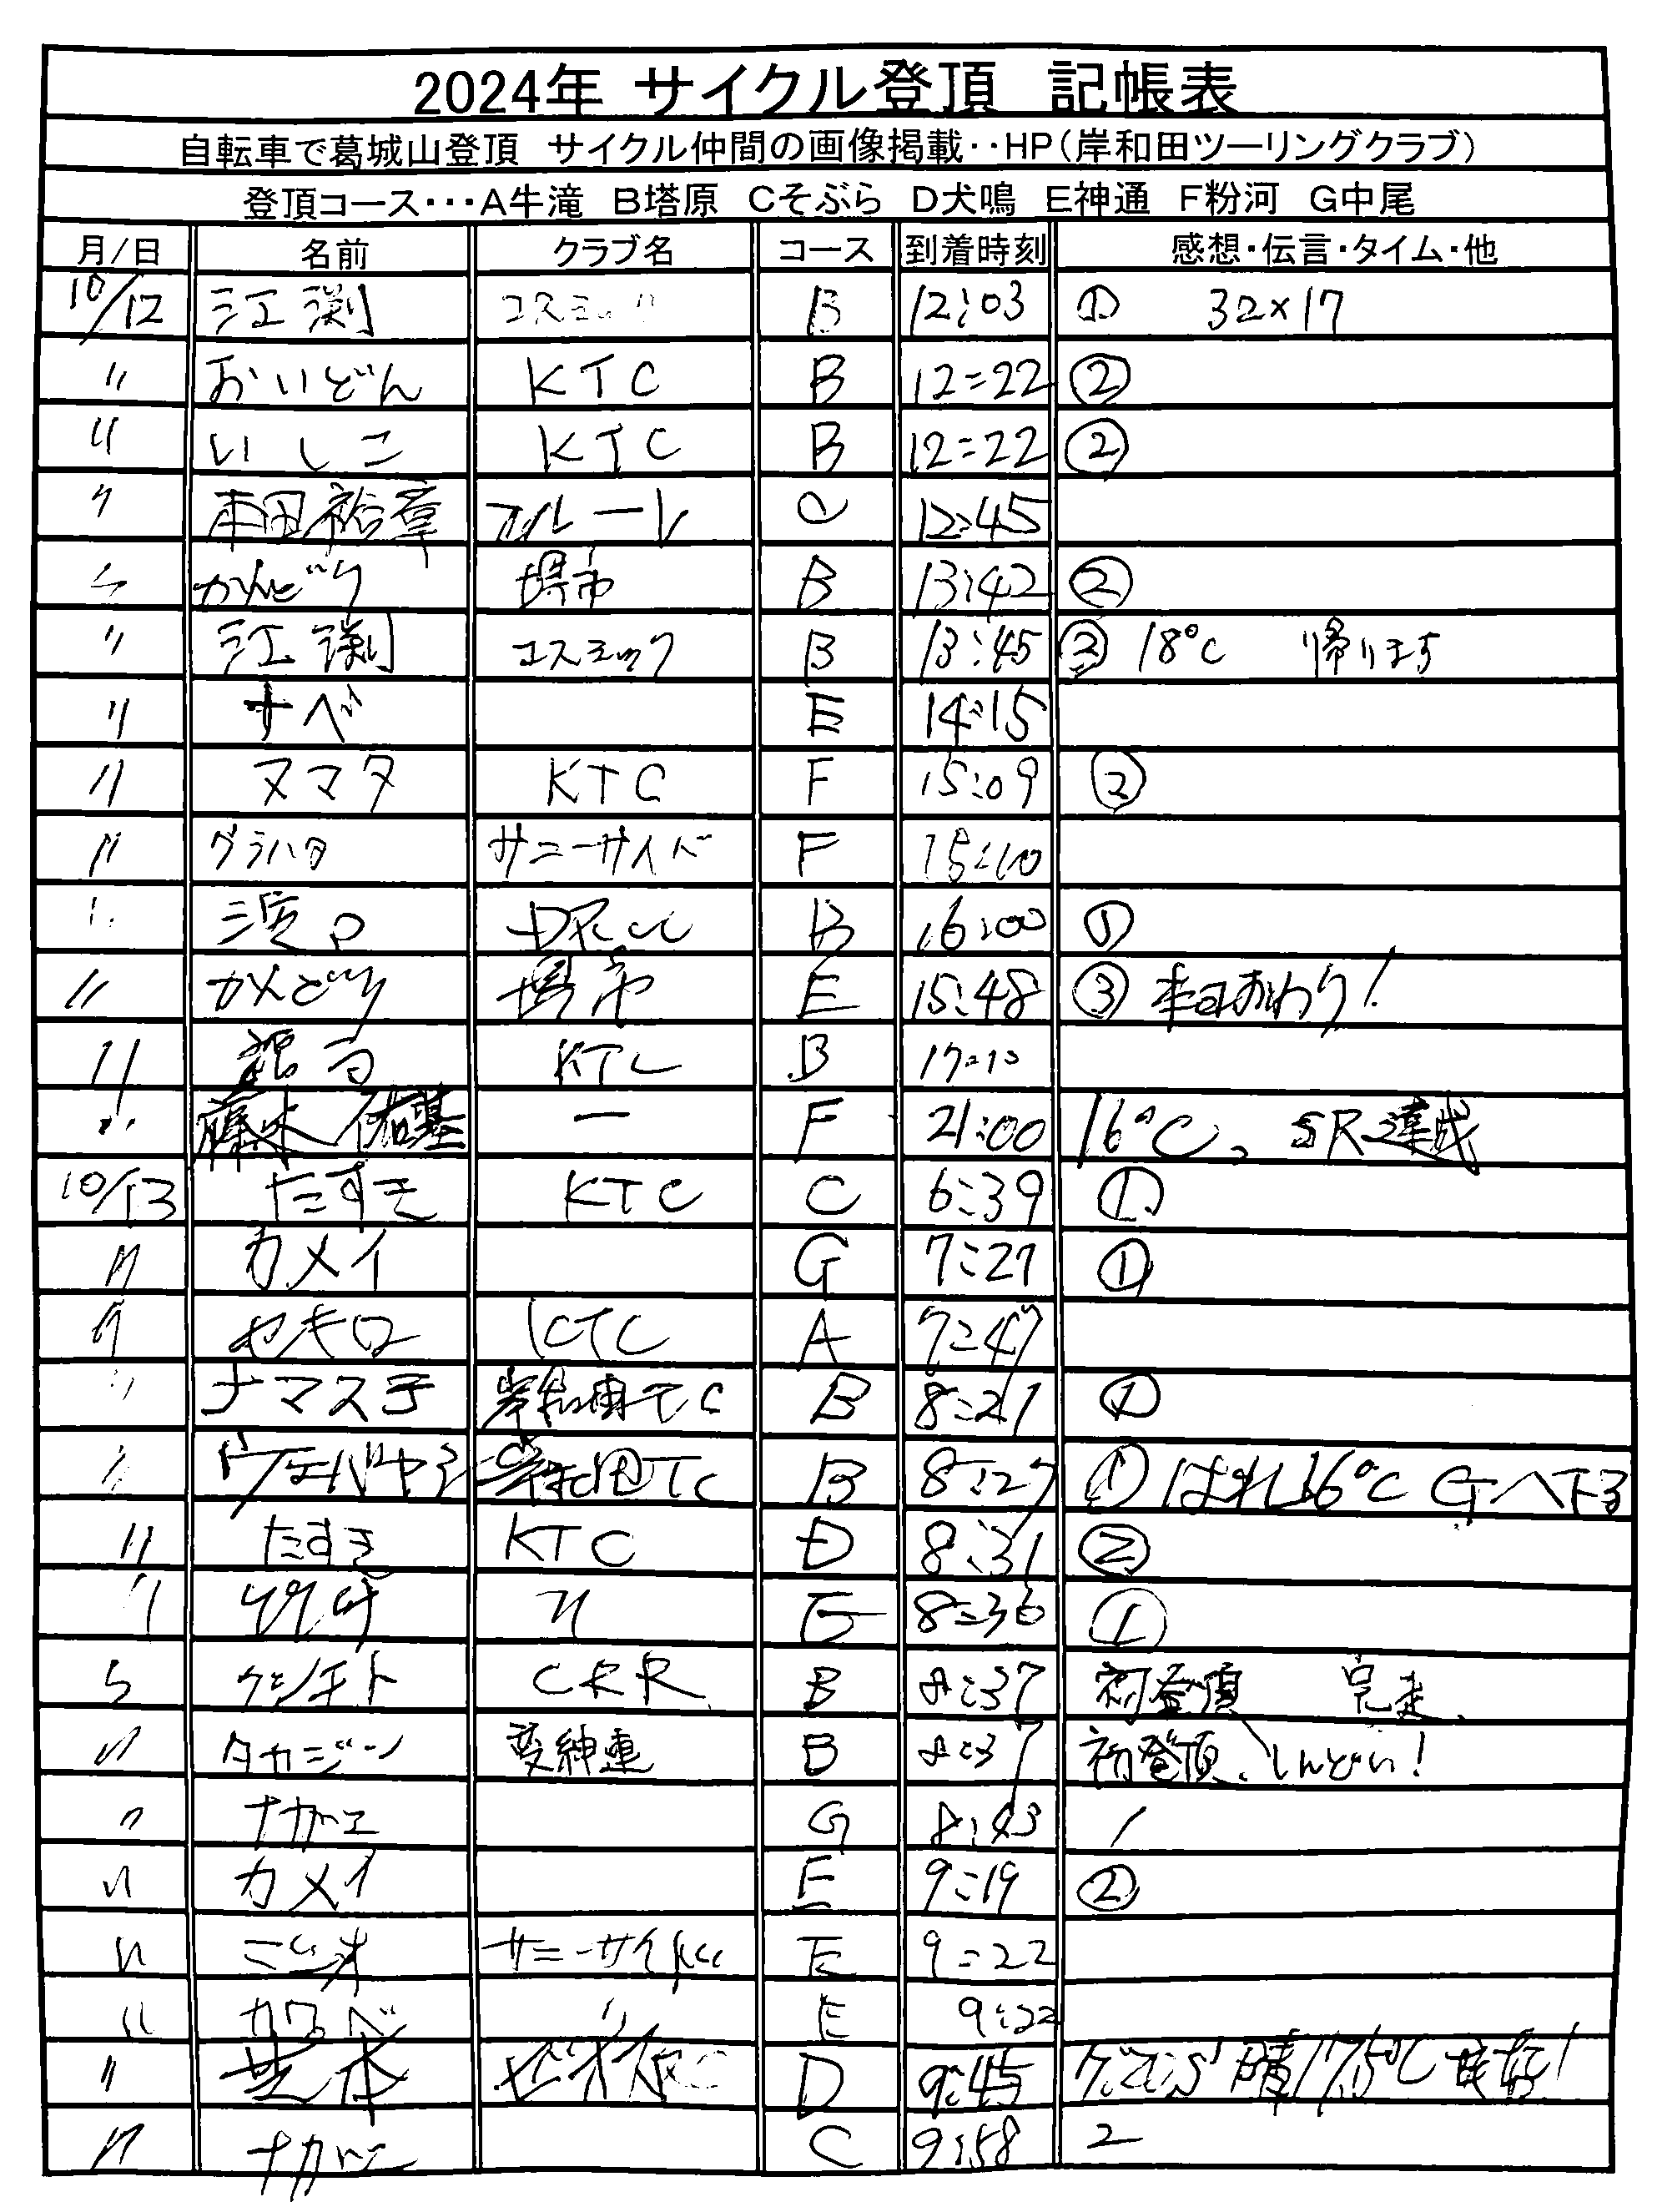 2024年 サイクル登頂 記帳表
自転車で葛城山登頂 サイクル仲間の画像掲載‥HP(岸和田ツーリングクラブ)
登頂コース･･･A牛滝 B塔原 Cそぶら D犬鳴 E神通 F粉河 G中尾
月/日 名前 クラブ名 コース 到着時刻 感想・伝言・タイム・他
10/12 江渕 コスミック B 12:03 ① 32×17
〃 おいどん KTC B 12:22 ②
〃 いしこ KTC B 12:22 ②
〃 本田裕章 C 12:45
〃 かんどり 堺市 B 13:42 ②
〃 江渕 コスミック B 13:45 ② 18℃ 帰ります
〃 ナベ E 14:15
〃 ヌマタ KTC F 15:09 ②
〃 クラハタ サニーサイド F 15:10
〃 濱口 B 16:00 ①
〃 かんどり 堺市 E 15:48 ③ 本日おわり!
〃 KTC B 17:10
〃 藤木佑基 ー F 21:00 16℃、SR達成
10/13 たすき KTC C 6:39 ①
〃 カメイ G 7:27 ①
〃 セキロ KTC A 7:47
〃 ナマステ 岸和田TC B 8:21 ①
〃 岸和田TC B 8:27 ① はれ16℃ Gへ下る
〃 たすき KTC D 8:31 ②
〃 〃 E 8:36 ①
〃 ケンチト CRR B 8:37 初登頂 完走
〃 タカジン 変紳連 B 8:37 初登頂、しんどい!
〃 ナカエ G 8:43 1
〃 カメイ E 9:19 ②
〃 サニーサイド E 9:22
〃 カワベ 〃 E 9:22
〃 芝本 D 9:45 晴17.5℃
〃 ナカエ C 9:58 2